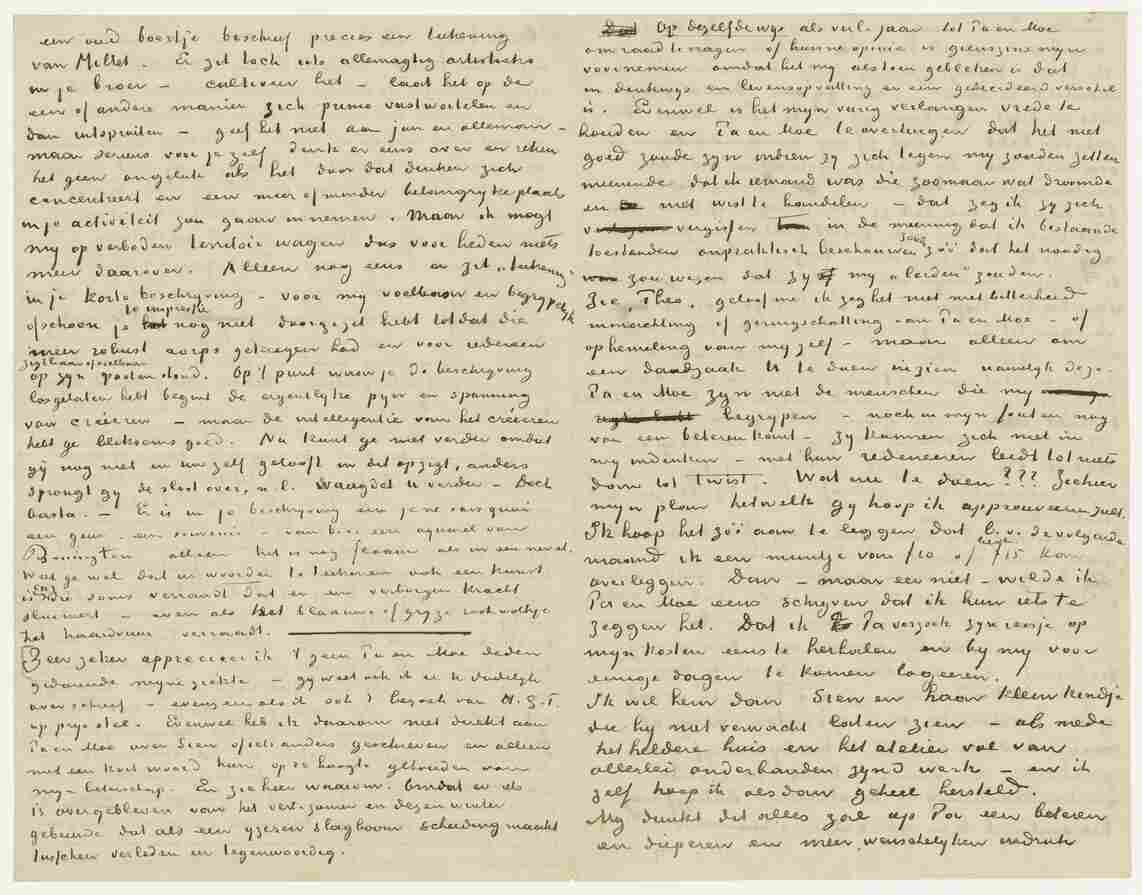 een oud boertje beschreef precies een teekening
van Millet. Er zit toch iets allemagtig artistieks
in je broer – cultiveer het – laat het op de
een of andere manier zich primo vastwortelen en
dan uitspruiten – geef het niet aan jan en alleman –
maar serieus voor je zelf denk er eens over en reken
het geen ongeluk als het door dat denken zich
concentreert en een meer of minder belangrijke plaats
in je activiteit zou gaan innemen. Maar ik mogt
mij op verboden territoir wagen dus voor heden niets
meer daarover. Alleen nog eens er zit „teekening"
in je korte beschrijving – voor mij voelbaar en begrijpelijk
ofschoon je te impressie nog niet doorgezet hebt totdat die
meer robust corps gekregen had en voor iedereen
zigtbaar of voelbaar
op zijn pooten stond. Op 't punt waar je de beschrijving
losgelaten hebt begint de eigentlijke pijn en spanning
van créeren – maar de intelligentie van het créeren
hebt ge bliksems goed. Nu kunt ge niet verder omdat
gij nog niet in uw zelf gelooft in dit opzigt, anders
sprongt gij de sloot over, n.l. waagdet u verder – Doch
basta. – Er is in je beschrijving een je ne sais quoi
een geur – een souvenir – van b.v. een aquarel van
Bonington alleen het is nog flaauw als in een nevel.
Weet ge wel dat in woorden te teekenen ook een kunst
is en die soms verraadt dat er een verborgen kracht
sluimert – even als het blaauwe of grijze rookwolkje
het haardvuur verraadt.
Zeer zeker apprecieer ik 't geen Pa en Moe deden
gedurende mijne ziekte – gij weet ook ik er u dadelijk
over schreef – evenzeer als ik ook 't bezoek van H.G.T.
op prijs stel. Evenwel heb ik daarom niet direkt aan
Pa en Moe over Sien of iets anders geschreven en alleen
met een kort woord hun op de hoogte gehouden van
mijn beterschap. En ziehier waarom. Omdat er iets
is overgebleven van het verl. zomer en dezen winter
gebeurde dat als een yzeren slagboom scheiding maakt
tusschen verleden en tegenwoordig.
Op dezelfde wijs als verl. jaar tot Pa en Moe
om raad te vragen of hunne opinie is geenszins mijn
voornemen omdat het mij alstoen gebleken is dat
in denkwijs en levensopvatting er een gedecideerd verschil
is. Evenwel is het mijn vurig verlangen vrede te
houden en Pa en Moe te overtuigen dat het niet
goed zoude zijn indien zij zich tegen mij zouden zetten
meenende dat ik iemand was die zoomaar wat droomde
en niet wist te handelen – dat zeg ik zij zich
vergissen in de meening dat ik bestaande
toestanden onpraktisch beschouwen zou zóó dat het noodig
zou wezen dat zij mij „leiden" zouden.
Zie, Theo, geloof me ik zeg het niet met bitterheid
minachting of geringschatting van Pa en Moe – of
ophemeling van mijzelf – maar alleen om
een daadzaak U te doen inzien namelijk deze.
Pa en Moe zijn niet de menschen die mij
begrijpen – noch in mijn fout en nog
van een beteren kant – zij kunnen zich niet in
mij indenken – met hun redeneeren leidt tot niets
dan tot twist. Wat nu te doen??? Ziehier
mijn plan hetwelk gij hoop ik approuveeren zult.
Ik hoop het zóó aan te leggen dat b.v. de volgende
maand ik een muntje van f10 of liefst f15 kan
overleggen. Dan – maar eer niet – wilde ik
Pa en Moe eens schrijven dat ik hun iets te
zeggen heb. Dat ik Pa verzoek zijn reisje op
mijn kosten eens te herhalen en bij mij voor
eenige dagen te komen logeeren.
Ik wil hem dan Sien en haar kleine kindje
die hij niet verwacht laten zien – als mede
het heldere huis en het atelier vol van
allerlei onderhanden zijnd werk – en ik
zelf hoop ik alsdan geheel hersteld.
Mij dunkt dit alles zal op Pa een beteren
en dieperen en meer wenschelijken indruk